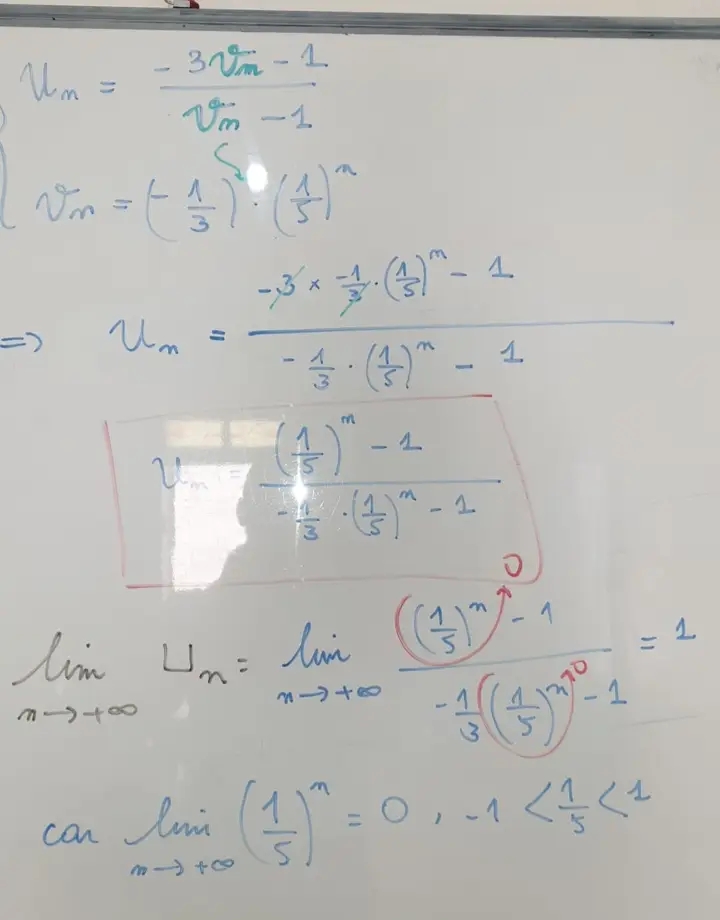 Uₙ = (-3Vₙ - 1)/(Vₙ - 1)
Vₙ = (-1/3) · (1/5)ⁿ
=> Uₙ = (-3 × -1/3 · (1/5)ⁿ - 1)/(-1/3 · (1/5)ⁿ - 1)
Uₙ = ((1/5)ⁿ - 1)/(-1/3 · (1/5)ⁿ - 1)
0
lim n→+∞ Uₙ = lim n→+∞ ((1/5)ⁿ - 1)/(-1/3 (1/5)ⁿ - 1) = 1
0
car lim n→+∞ (1/5)ⁿ = 0, -1 < 1/5 < 1